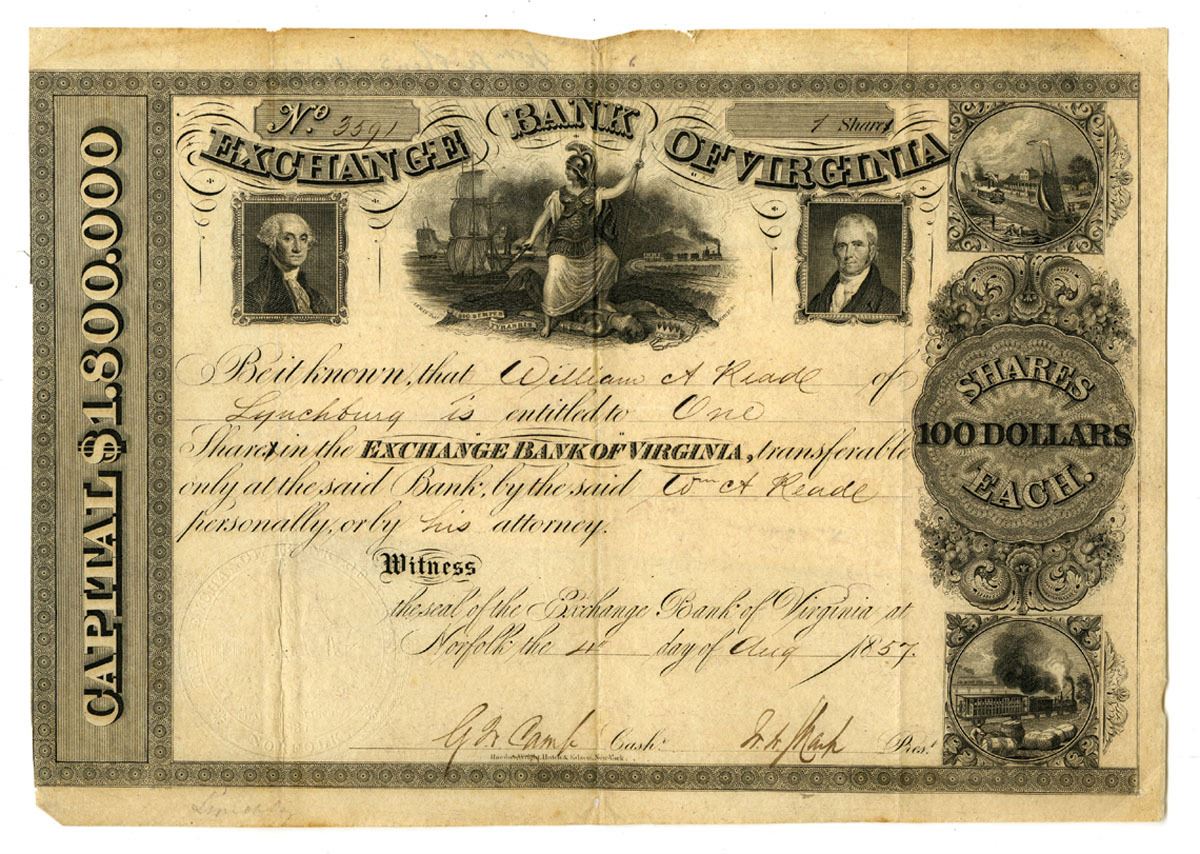 CAPITAL $1.800.000
No. 3591
1 Shares
EXCHANGE BANK OF VIRGINIA
SIC SEMPER
TYRANNIS
Be it known, that William A Reade of
Lynchburg is entitled to One
Shares in the EXCHANGE BANK OF VIRGINIA, transferable
only at the said Bank, by the said Wm A Reade
personally, or by his attorney.
Witness
the seal of the Exchange Bank of Virginia at
Norfolk the 4th day of Aug 1857.
Camp Cashr. Prest.
Hatch & New York
SHARES
100 DOLLARS
EACH.
NORFOLK